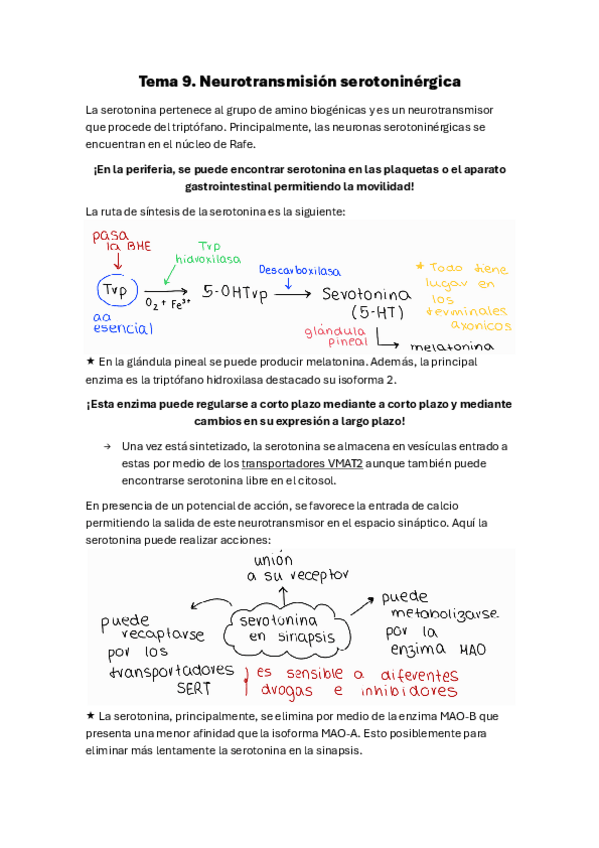 Tema 9. Neurotransmisión serotoninérgica
La serotonina pertenece al grupo de amino biogénicas y es un neurotransmisor
que procede del triptófano. Principalmente, las neuronas serotoninérgicas se
encuentran en el núcleo de Rafe.
¡En la periferia, se puede encontrar serotonina en las plaquetas o el aparato
gastrointestinal permitiendo la movilidad!
La ruta de síntesis de la serotonina es la siguiente:
pasa
la BHE
Trp
hidroxilasa
Descarboxilasa
Trp
O2 + Fe3+
5-OHTrp
Serotonina
(5-HT)
aa
esencial
glándula
pineal
melatonina
* Todo tiene
lugar en
los
terminales
axonicos
★ En la glándula pineal se puede producir melatonina. Además, la principal
enzima es la triptófano hidroxilasa destacado su isoforma 2.
¡Esta enzima puede regularse a corto plazo mediante a corto plazo y mediante
cambios en su expresión a largo plazo!
→ Una vez está sintetizado, la serotonina se almacena en vesículas entrado a
estas por medio de los transportadores VMAT2 aunque también puede
encontrarse serotonina libre en el citosol.
En presencia de un potencial de acción, se favorece la entrada de calcio
permitiendo la salida de este neurotransmisor en el espacio sináptico. Aquí la
serotonina puede realizar acciones:
unión
a su receptor
puede
recaptarse
por los
transportadores
SERT
serotonina
en sinapsis
puede
metabolizarse
por la
enzima MAO
! es sensible a diferentes
drogas e inhibidores
★ La serotonina, principalmente, se elimina por medio de la enzima MAO-B que
presenta una menor afinidad que la isoforma MAO-A. Esto posiblemente para
eliminar más lentamente la serotonina en la sinapsis.